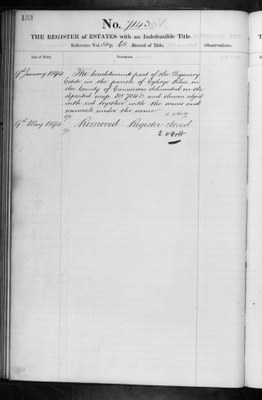 133
No. 7143
THE REGISTER of ESTATES with an Indefeasible Title.
Reference Vol. Record of Title.
Date of Entry. Description Observations.
9th January 1894 The hereditament part of the
Estate in the parish of
the County of Carnarvon delineated on the
deposited map No 7143 and thereon edged
with red together with the mines and
minerals under the same
9th May 1894 Removed Register closed